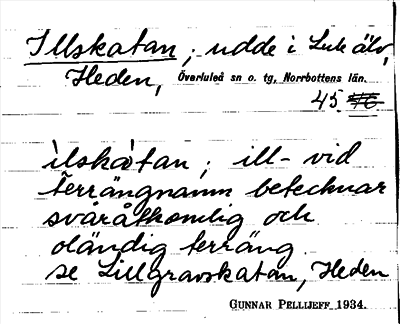 Illskatan; udde i Lule älv,
Heden, Överluleå sn o. tg, Norrbottens län.
45.
ìlskàtan; ill- vid
terrängnamn betecknar
svåråtkomlig och
oländig terräng.
se Lillgravskatan, Heden
GUNNAR PELLIJEFF 1934.